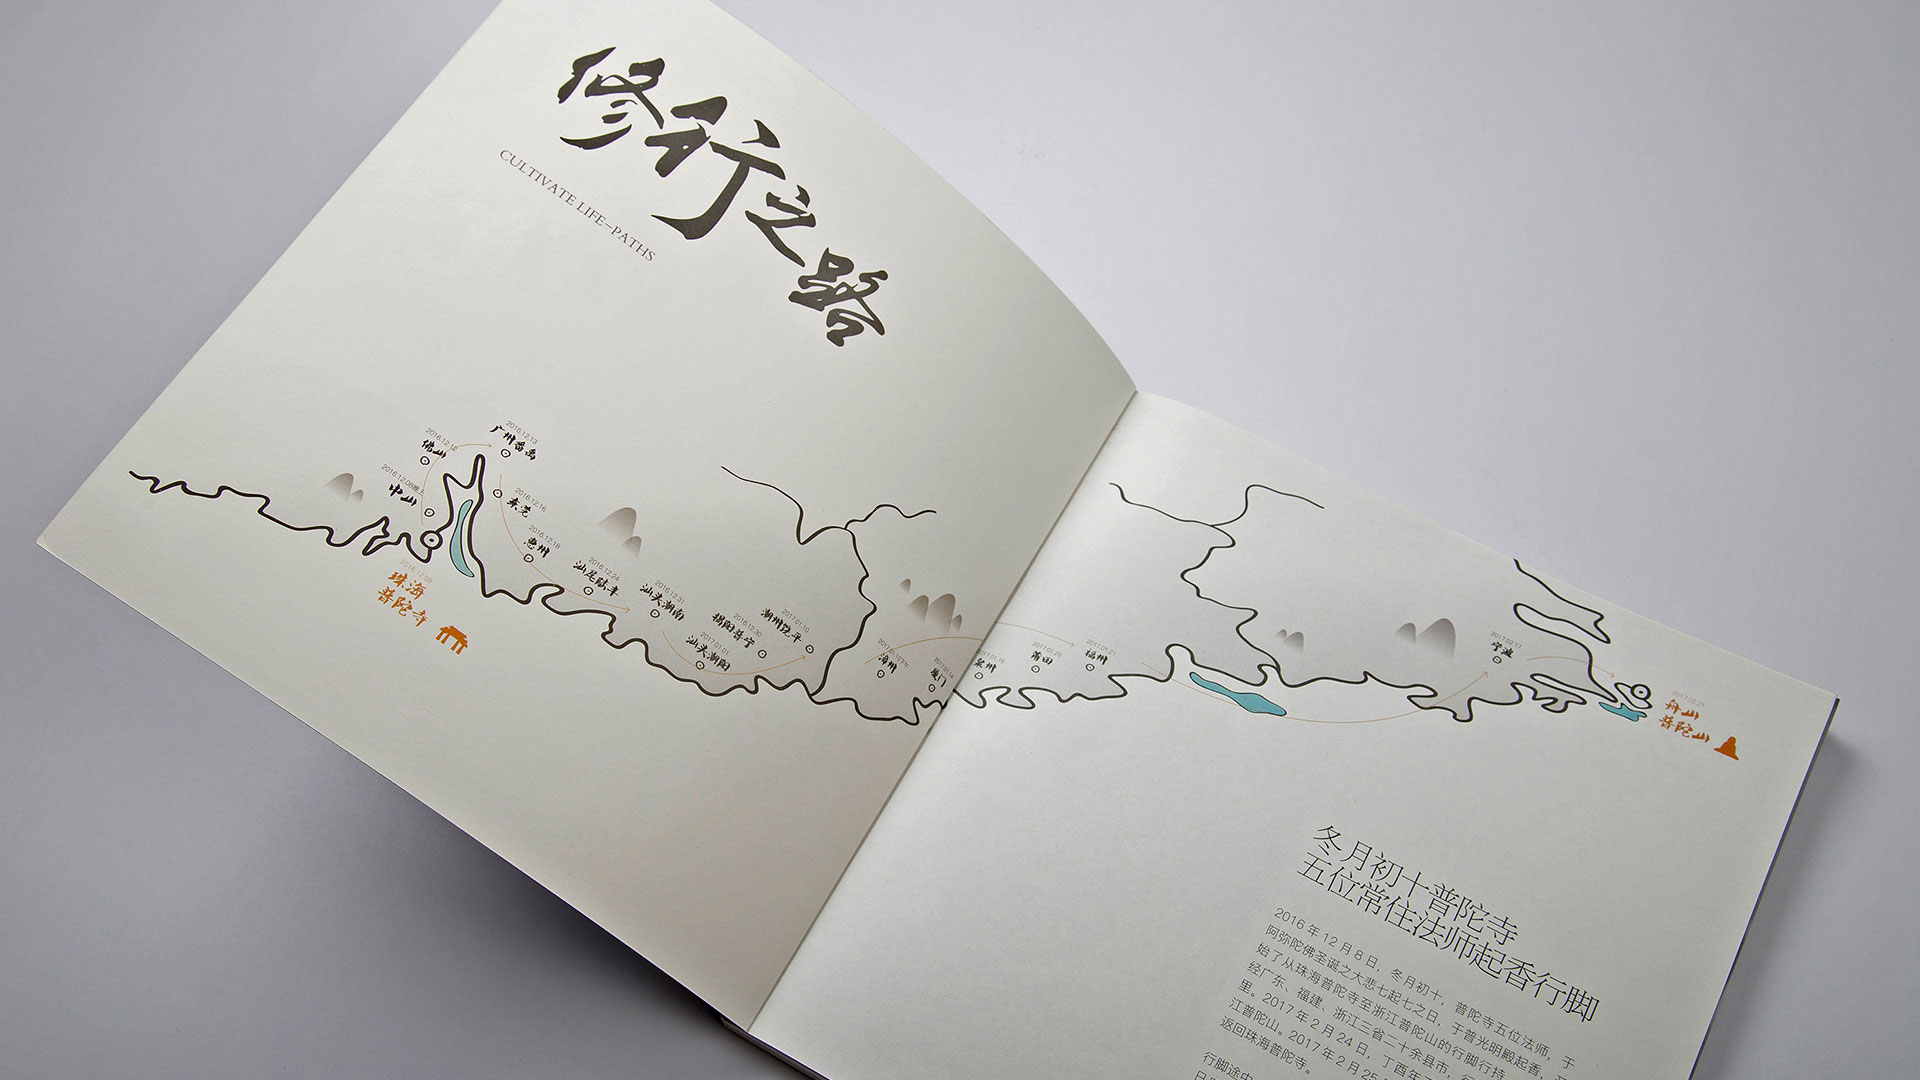 修行之路
CULTIVATE LIFE-PATHS
2016.12.13
广州番禺
2016.12.12
佛山
2016.12.09晚上
中山
2016.12.08
珠海
普陀寺
2016.12.16
东莞
2016.12.18
惠州
2016.12.24
汕尾陆丰
2016.12.31
汕头潮南
2017.01.01
汕头潮阳
2016.12.30
揭阳普宁
2017.01.10
潮州饶平
漳州
2017.01.14
厦门
2017.01.16
泉州
2017.01.20
莆田
2017.01.21
福州
2017.02.17
宁波
舟山
普陀山
冬月初十普陀寺
五位常住法师起香行脚
2016 年 12 月 8 日，冬月初十，普陀寺五位法师，于
阿弥陀佛圣诞之大悲七起七之日，于普光明殿起香，开
始了从珠海普陀寺至浙江普陀山的行脚行持
经广东、福建、浙江三省二十余县市，
里。2017 年 2 月 24 日，丁酉年
江普陀山。2017 年 2 月 25
返回珠海普陀寺。
行脚途中